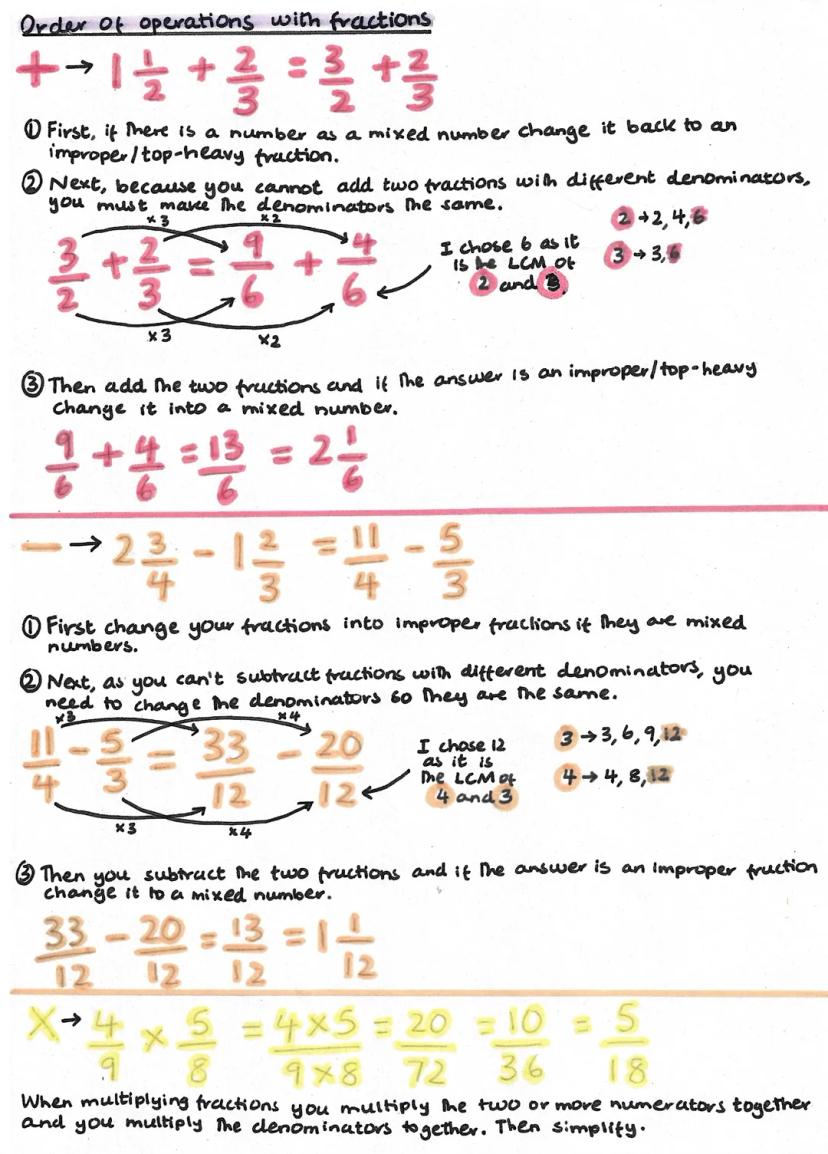 Order of operations with fractions
+ → 1 1/2 + 2/3 = 3/2 + 2/3
① First, if there is a number as a mixed number change it back to an
improper/top-heavy fraction.
② Next, because you cannot add two fractions with different denominators,
you must make the denominators the same.
×3 ×2
3/2 + 2/3 = 9/6 + 4/6
×3 ×2
I chose 6 as it
is the LCM of
2 and 3.
2 → 2, 4, 6
3 → 3, 6
③ Then add the two fractions and if the answer is an improper/top-heavy
change it into a mixed number.
9/6 + 4/6 = 13/6 = 2 1/6
− → 2 3/4 − 1 2/3 = 11/4 − 5/3
① First change your fractions into improper fractions if they are mixed
numbers.
② Next, as you can't subtract fractions with different denominators, you
need to change the denominators so they are the same.
×3 ×4
11/4 − 5/3 = 33/12 − 20/12
×3 ×4
I chose 12
as it is
the LCM of
4 and 3
3 → 3, 6, 9, 12
4 → 4, 8, 12
③ Then you subtract the two fractions and if the answer is an improper fraction
change it to a mixed number.
33/12 − 20/12 = 13/12 = 1 1/12
× → 4/9 × 5/8 = 4×5/9×8 = 20/72 = 10/36 = 5/18
When multiplying fractions you multiply the two or more numerators together
and you multiply the denominators together. Then simplify.